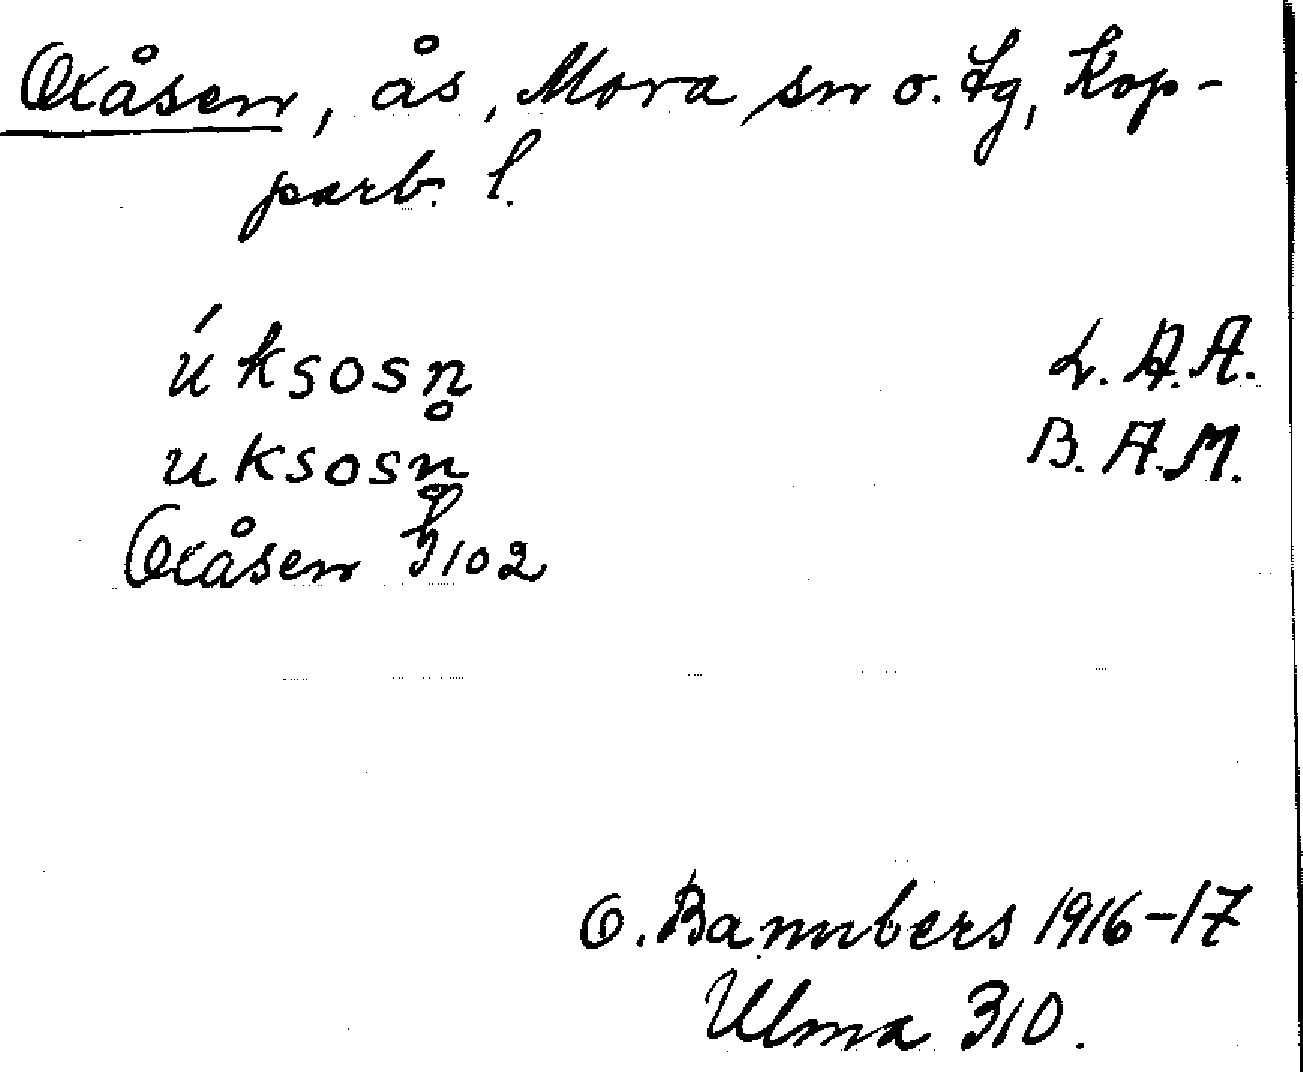 Oxåsen, ås, Mora sn o. tg, Kop-
parb. l.
úksosn̥ L. A. A.
uksosn̥ B. A. M.
Oxåsen h 102
O. Bannbers 1916-17
Ulma 310.